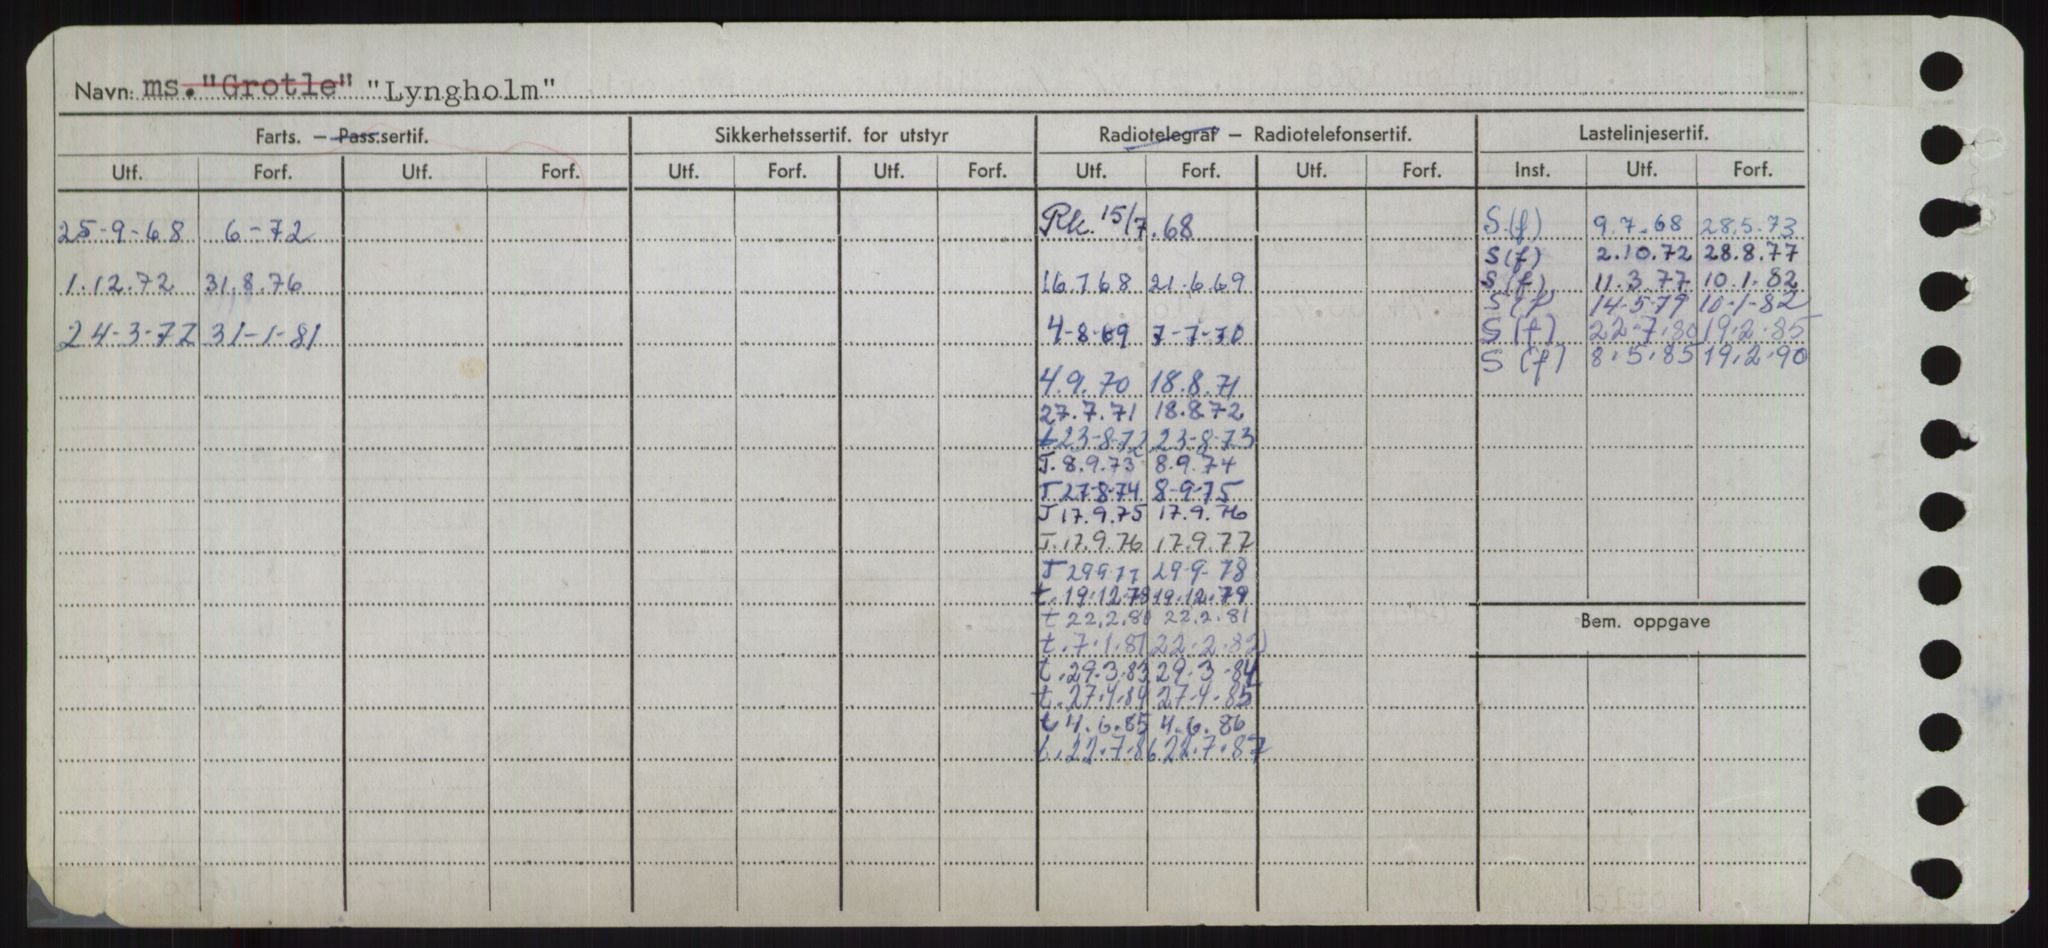 Navn: ms. "Grotle" "Lyngholm"
Farts. — Pass.sertif. Sikkerhetssertif. for utstyr Radiotelegraf — Radiotelefonsertif. Lastelinjesertif.
Utf. Forf. Utf. Forf. Utf. Forf. Utf. Forf. Utf. Forf. Utf. Forf. Inst. Utf. Forf.
25-9-68 6-72 Rk. 15/7.68 S (f) 9.7.68 28.5.73
S (f) 2.10.72 28.8.77
1.12.72 31.8.76 16.7.68 21.6.69 S (f) 11.3.77 10.1.82
S (f) 14-5-79 10-1-82
24-3-77 31-1-81 4-8-69 7-7-70 S (f) 22.7.80 19.2.85
S (f) 8.5.85 19.2.90
4.9.70 18.8.71
27.7.71 18.8.72
t 23-8-72 23-8-73
T. 8.9.73 8.9.74
T 27-8-74 8-9-75
T 17.9.75 17.9.76
T. 17.9.76 17.9.77
T 29.9.77 29-9-78
t. 19.12.78 19.12.79
t 22.2.80 22.2.81
Bem. oppgave
t. 7.1.81 22.2.82
t. 29.3.83 29.3.84
t. 27.4.84 27.4.85
t 4.6.85 4.6.86
t. 22.7.86 22.7.87